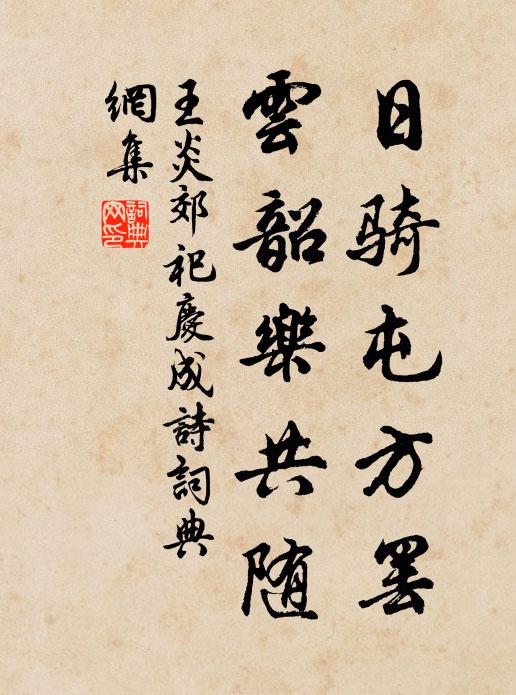 日騎屯方罢
雲韶樂共随
王炎郊祀慶成詩詞典
網集
詞典
网印